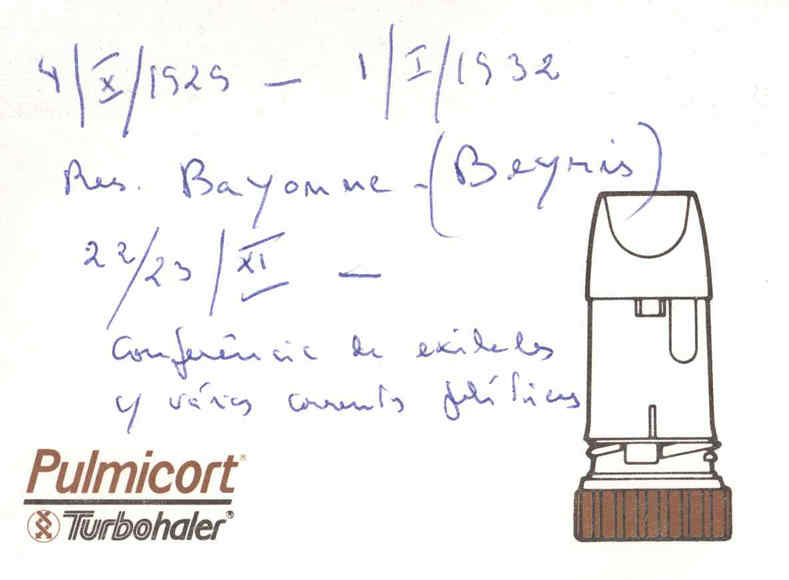 4/X/1929 — 1/I/1932
Res. Bayonne - (Beyris)
22/23/XI —
Conferência de exilados
y várias correntes políticas
Pulmicort®
Turbohaler®